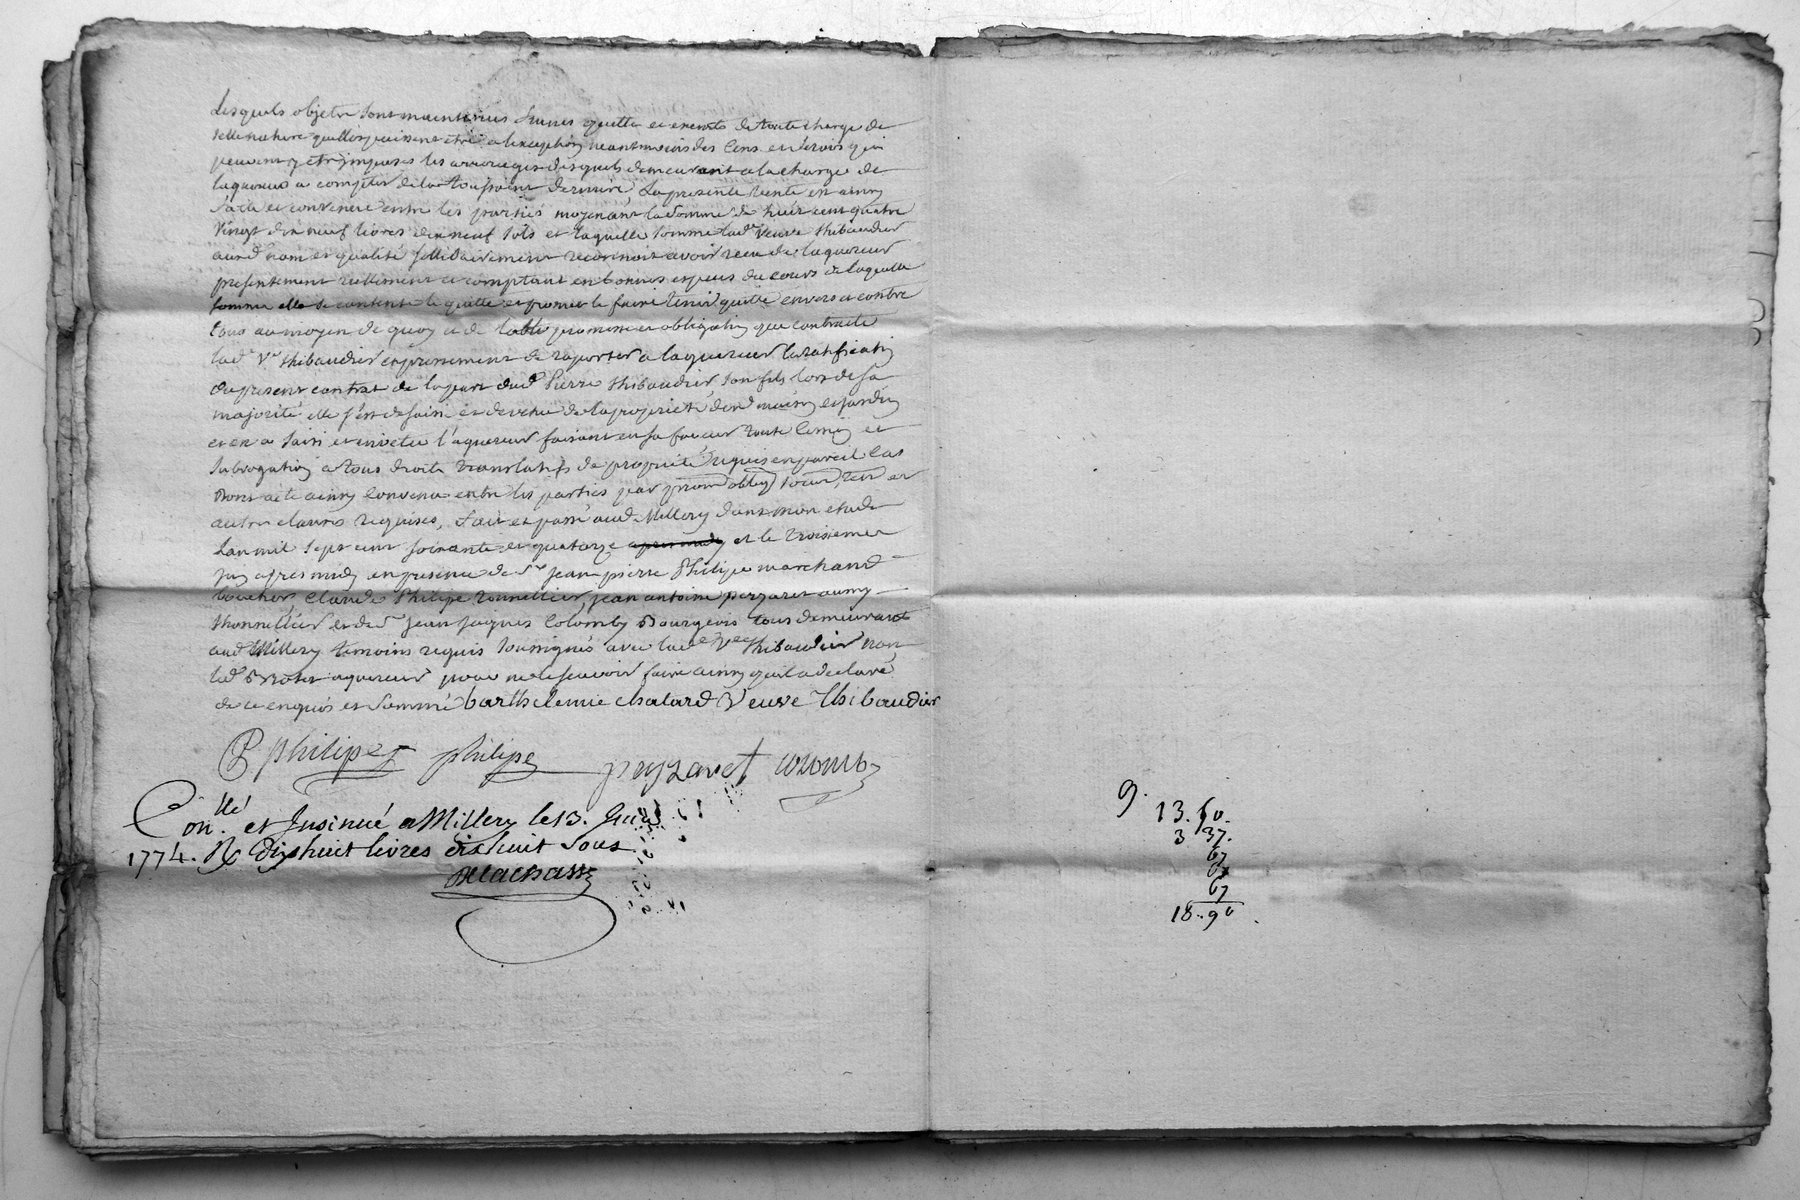 Lesquels objets sont maintenus francs quitte et exempts de toute charge de
telle nature quelles puissent être a lexception neantmoins des Cens et servis qui
peuvent y etre imposes les arrerages desquels demeurant a la charge de
laquereur a compter de la toussaint derniere, La presente vente est ainsy
faite et convenue entre les parties moyenant la somme de huit cent quatre
vingt dix neuf livres dix neuf sols et laquelle somme lad.e veuve thibaudier
aux d. nom et qualité sollidairement reconnoit avoir reçu de laquereur
presentement reellement et comptant en bonnes especes du cours de laquelle
somme elle se contente le quitte et promet le faire tenir quitte envers et contre
tous au moyen de quoy et de la promesse et obligation que contracte
lad.e V.e thibaudier expressement de raporter a laquereur la ratification
du present contrat de la part dud. Pierre thibaudier son fils lors de sa
majorité elle s'est desaisie et devetue de la proprieté desd. maison et jardin
et en a saisi et investu l'aquereur faisant en sa faveur toute cession et
subrogation a tous droits translatifs de proprieté requis en pareil cas
ainsy convenu entre les parties par prom. oblig. et
autres clauses requises, fait et passé aud. Millery dans mon etude
Lan mil sept cent soixante et quatorze apres midy et le troisieme
juin apres midy en presence de S.r jean pierre Philipe marchand
boucher, Claude Philipe tonnellier, jean antoine peyzaret aussy
thonnellier et de S.r jean jaques Colomby Bourgeois tous demeurant
aud. Millery temoins requis soussignés avec lad.e V.e thibaudier non
led. aquereur pour ne le scavoir faire ainsy quil a declaré
de ce enquis et sommé barthelemie chatard Veuve thibaudier
P philipe philipe peyzaret colomby
Con.llé et Insinué a Millery le 13. Juin
1774. R. dixhuit livres dixhuit sous
Delachasse
9.
13. 50.
3 37.
67
67
67
18.. 90